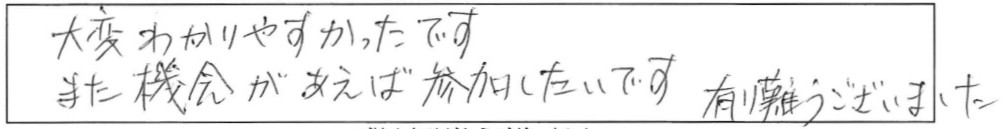 大変わかりやすかったです
また機会があえば参加したいです 有り難うございました